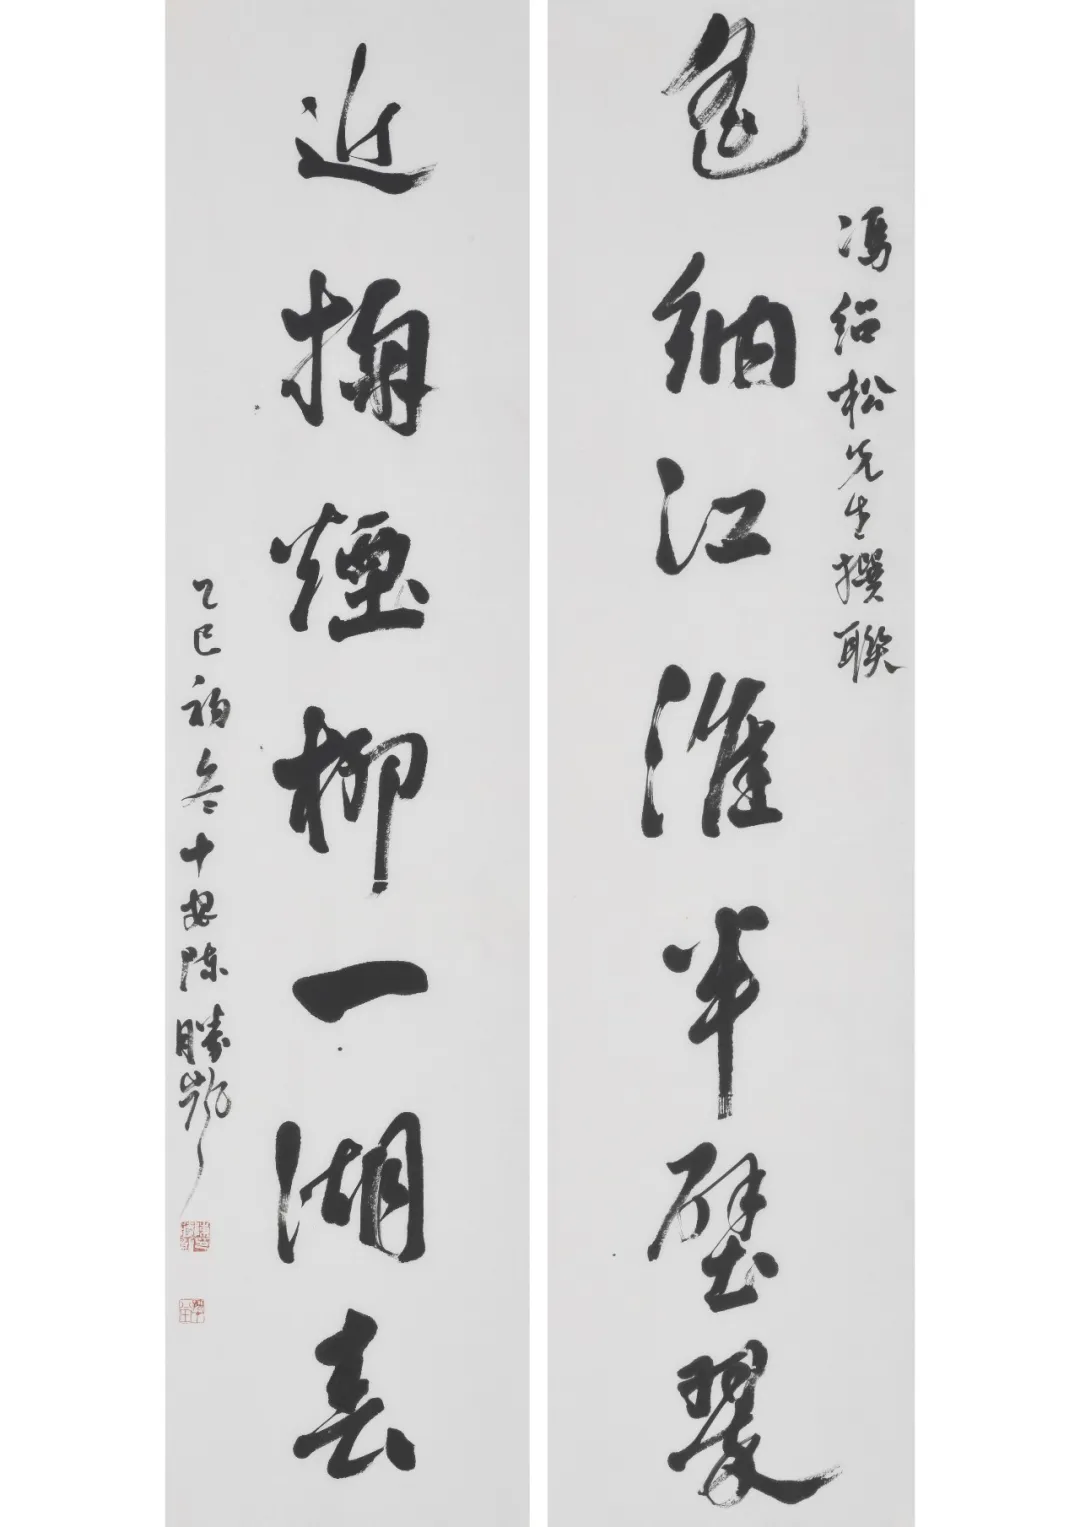 馮紹松先生撰聯
遙納江淮半壁翠
近拥煙柳一湖春
乙巳初冬十堰陳勝凱